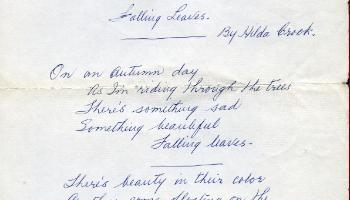 Falling Leaves.
By Hilda Crook.
On an Autumn day
As I'm riding through the trees
There's something sad
Something beautiful
Falling leaves.
There's beauty in their color
As they come floating on the